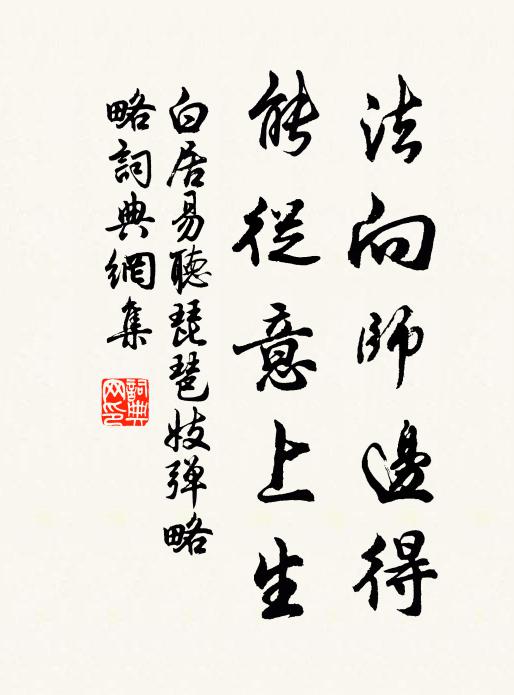 法向師邊得
能從意上生
白居易聽琵琶妓弹略
略詞典網集
詞典网印